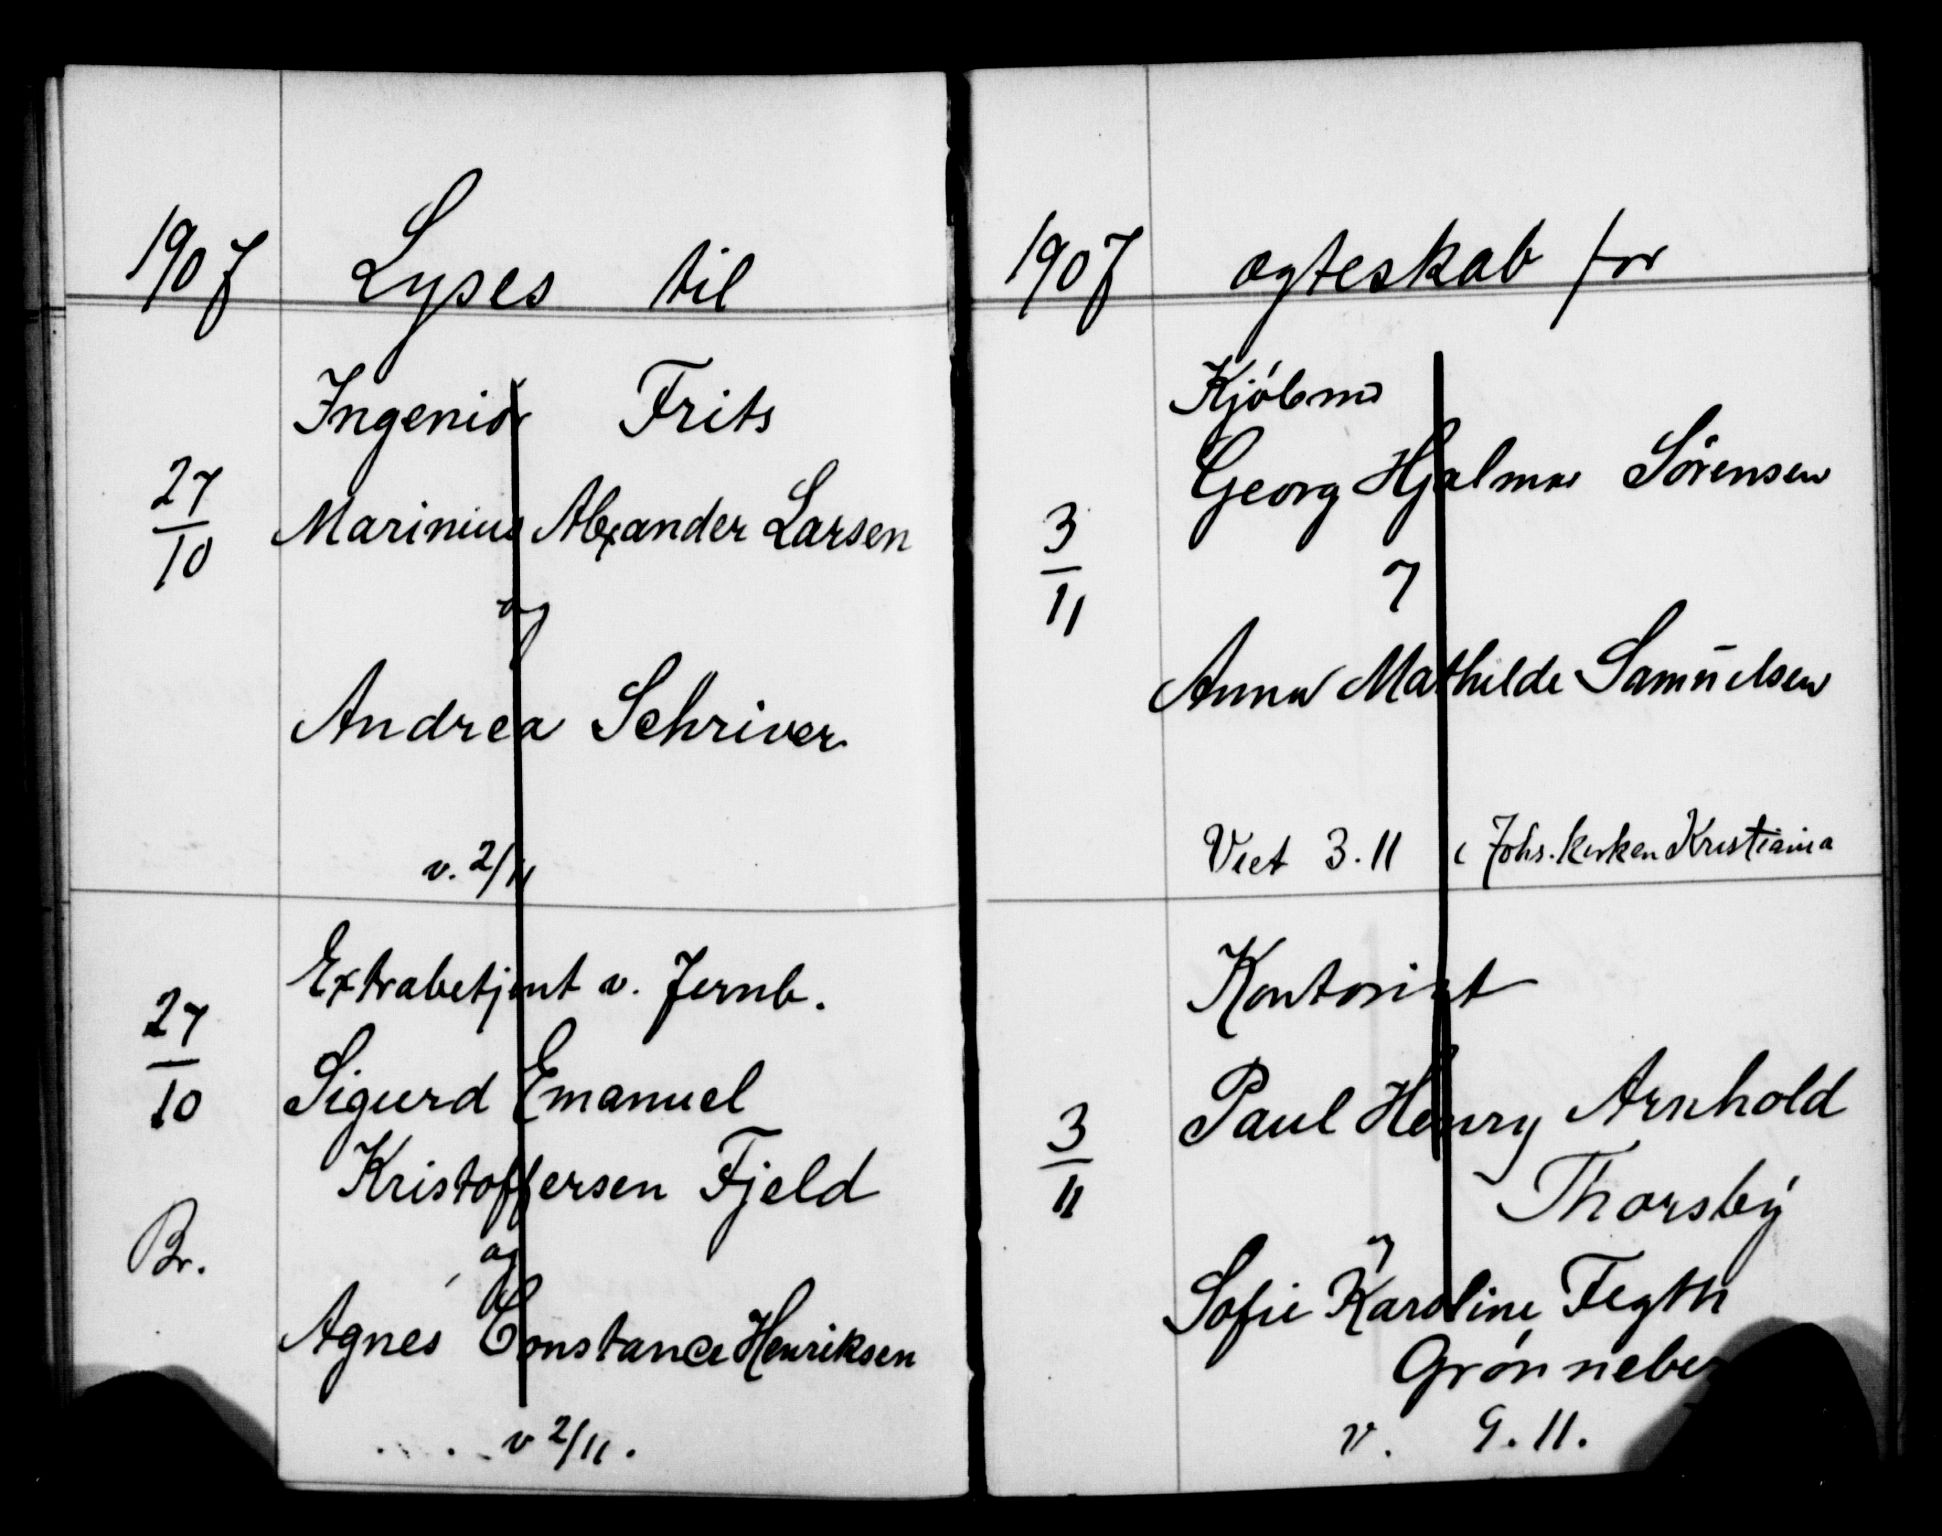 1907 Lyses til
Ingeniør Frits
27/10 Marinius Alexander Larsen
og
Andrea Schriver
v. 2/11
Extrabetjent v. Jernb.
27/10 Sigurd Emanuel
Kristoffersen Fjeld
Br. og
Agnes Constance Henriksen
v 2/11.
1907 ægteskab for
Kjøbmd
Georg Hjalmar Sørensen
3/11 og
Anna Mathilde Samuelsen
Viet 3.11 i Johs. kirken Kristiania
Kontorist
3/11 Paul Henry Arnhold
Thorsby
og
Sofie Karoline Fegth
v. 9.11.